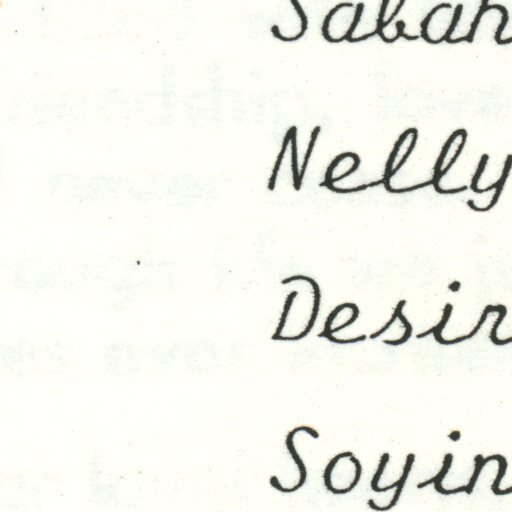 Sabah
Nelly
Desir
Soyin